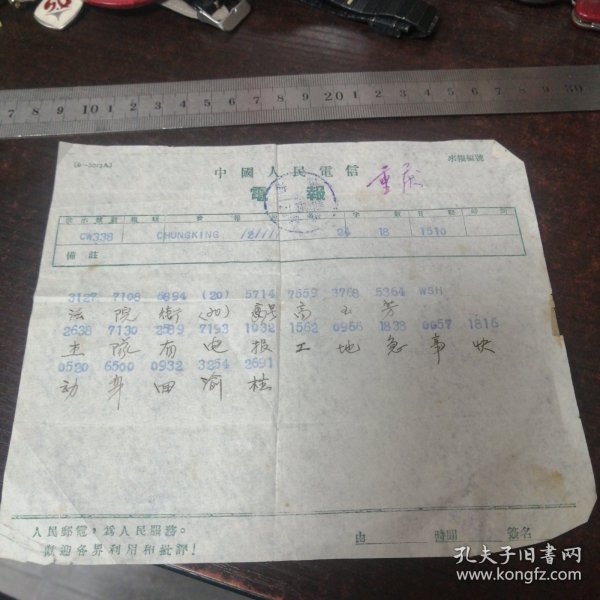 7 8 9 10 1 2 3 4 5 6 7 8 9 20 1 2 3 4 5 6 7 8 9 30
中國人民電信
電報
重庆
來報編號
CW338 CHUNGKING 24 18 1510
備註
3127 7108 5894 (20) 5714 7559 3768 5364 WSH
法 院 街 (20) 號 高 玉 芳
2638 7130 2589 7193 1032 1562 0966 1838 0057 1816
主 隊 有 电 报 工 地 急 事 快
0520 6500 0932 3254 2691
动 身 回 渝 桂
人民郵電，為人民服務。
歡迎各界利用和批評！
由 時間 簽名
孔夫子旧書网
www.kongfz.com